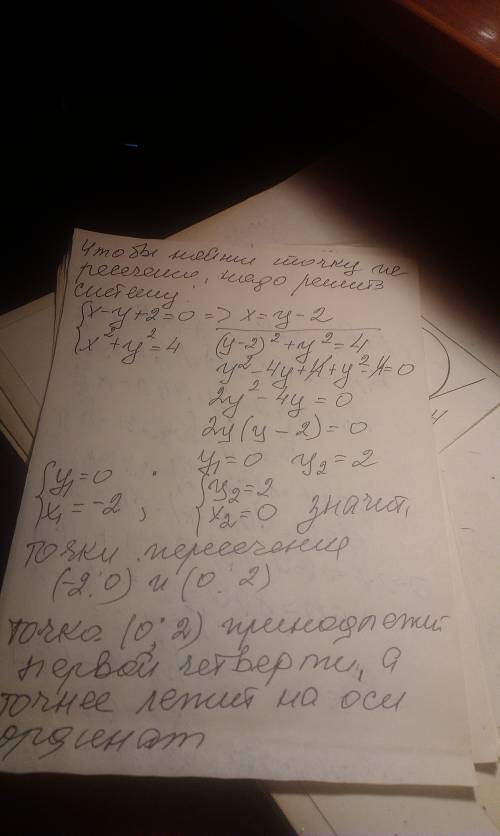 Чтобы найти точку пе
ресечения, надо решить
систему
{x-y+2=0 => x=y-2
{x²+y²=4 (y-2)²+y²=4
y²-4y+4+y²-4=0
2y²-4y=0
2y(y-2)=0
y₁=0 y₂=2
{y₁=0 {y₂=2
{x₁=-2 ; {x₂=0 значит,
точки пересечения
(-2;0) и (0; 2)
точка (0; 2) принадлежит
первой четверти, а
точнее лежит на оси
ординат
4